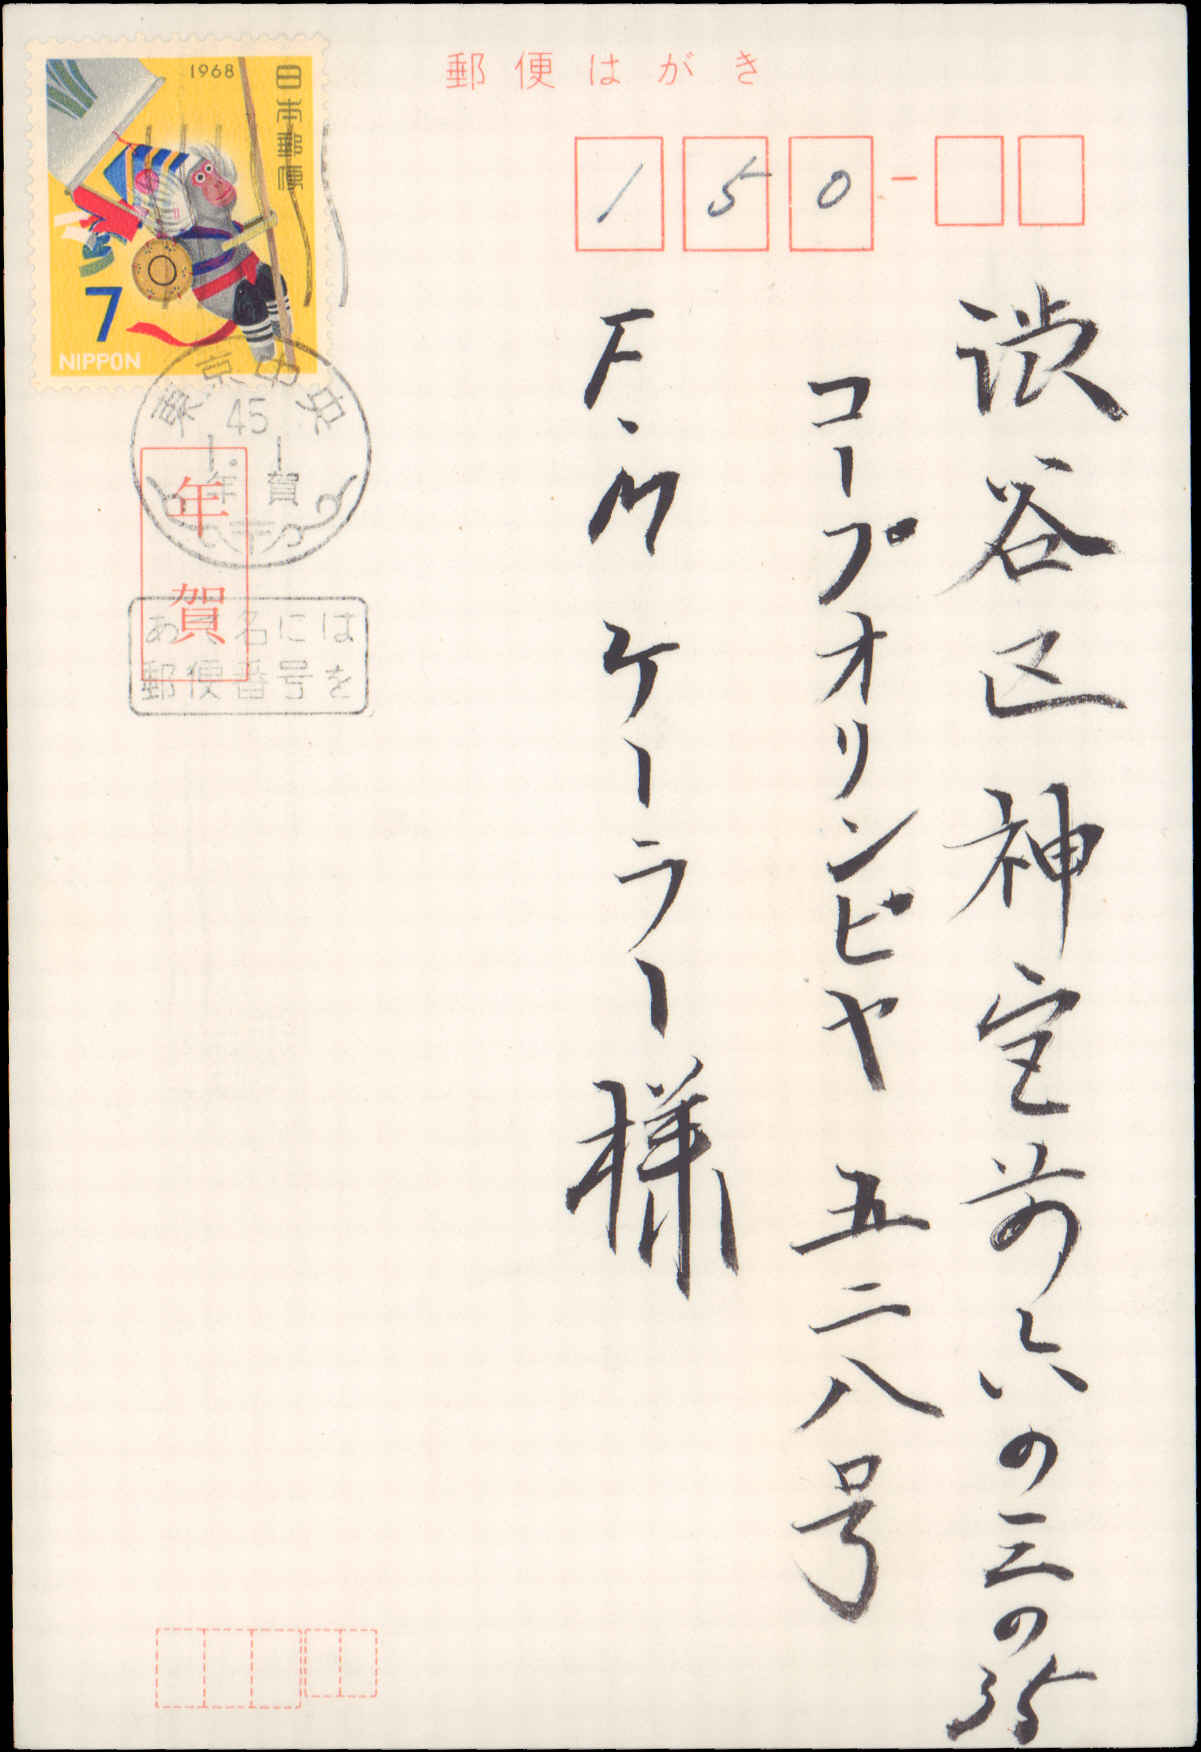 郵便はがき
150-
渋谷区神宮前六の三の35
コープオリンピヤ 五二八号
F.M ケーラー様
1968
日本郵便
7
NIPPON
東京中央
45
1.1
年賀
年賀
あて名には
郵便番号を